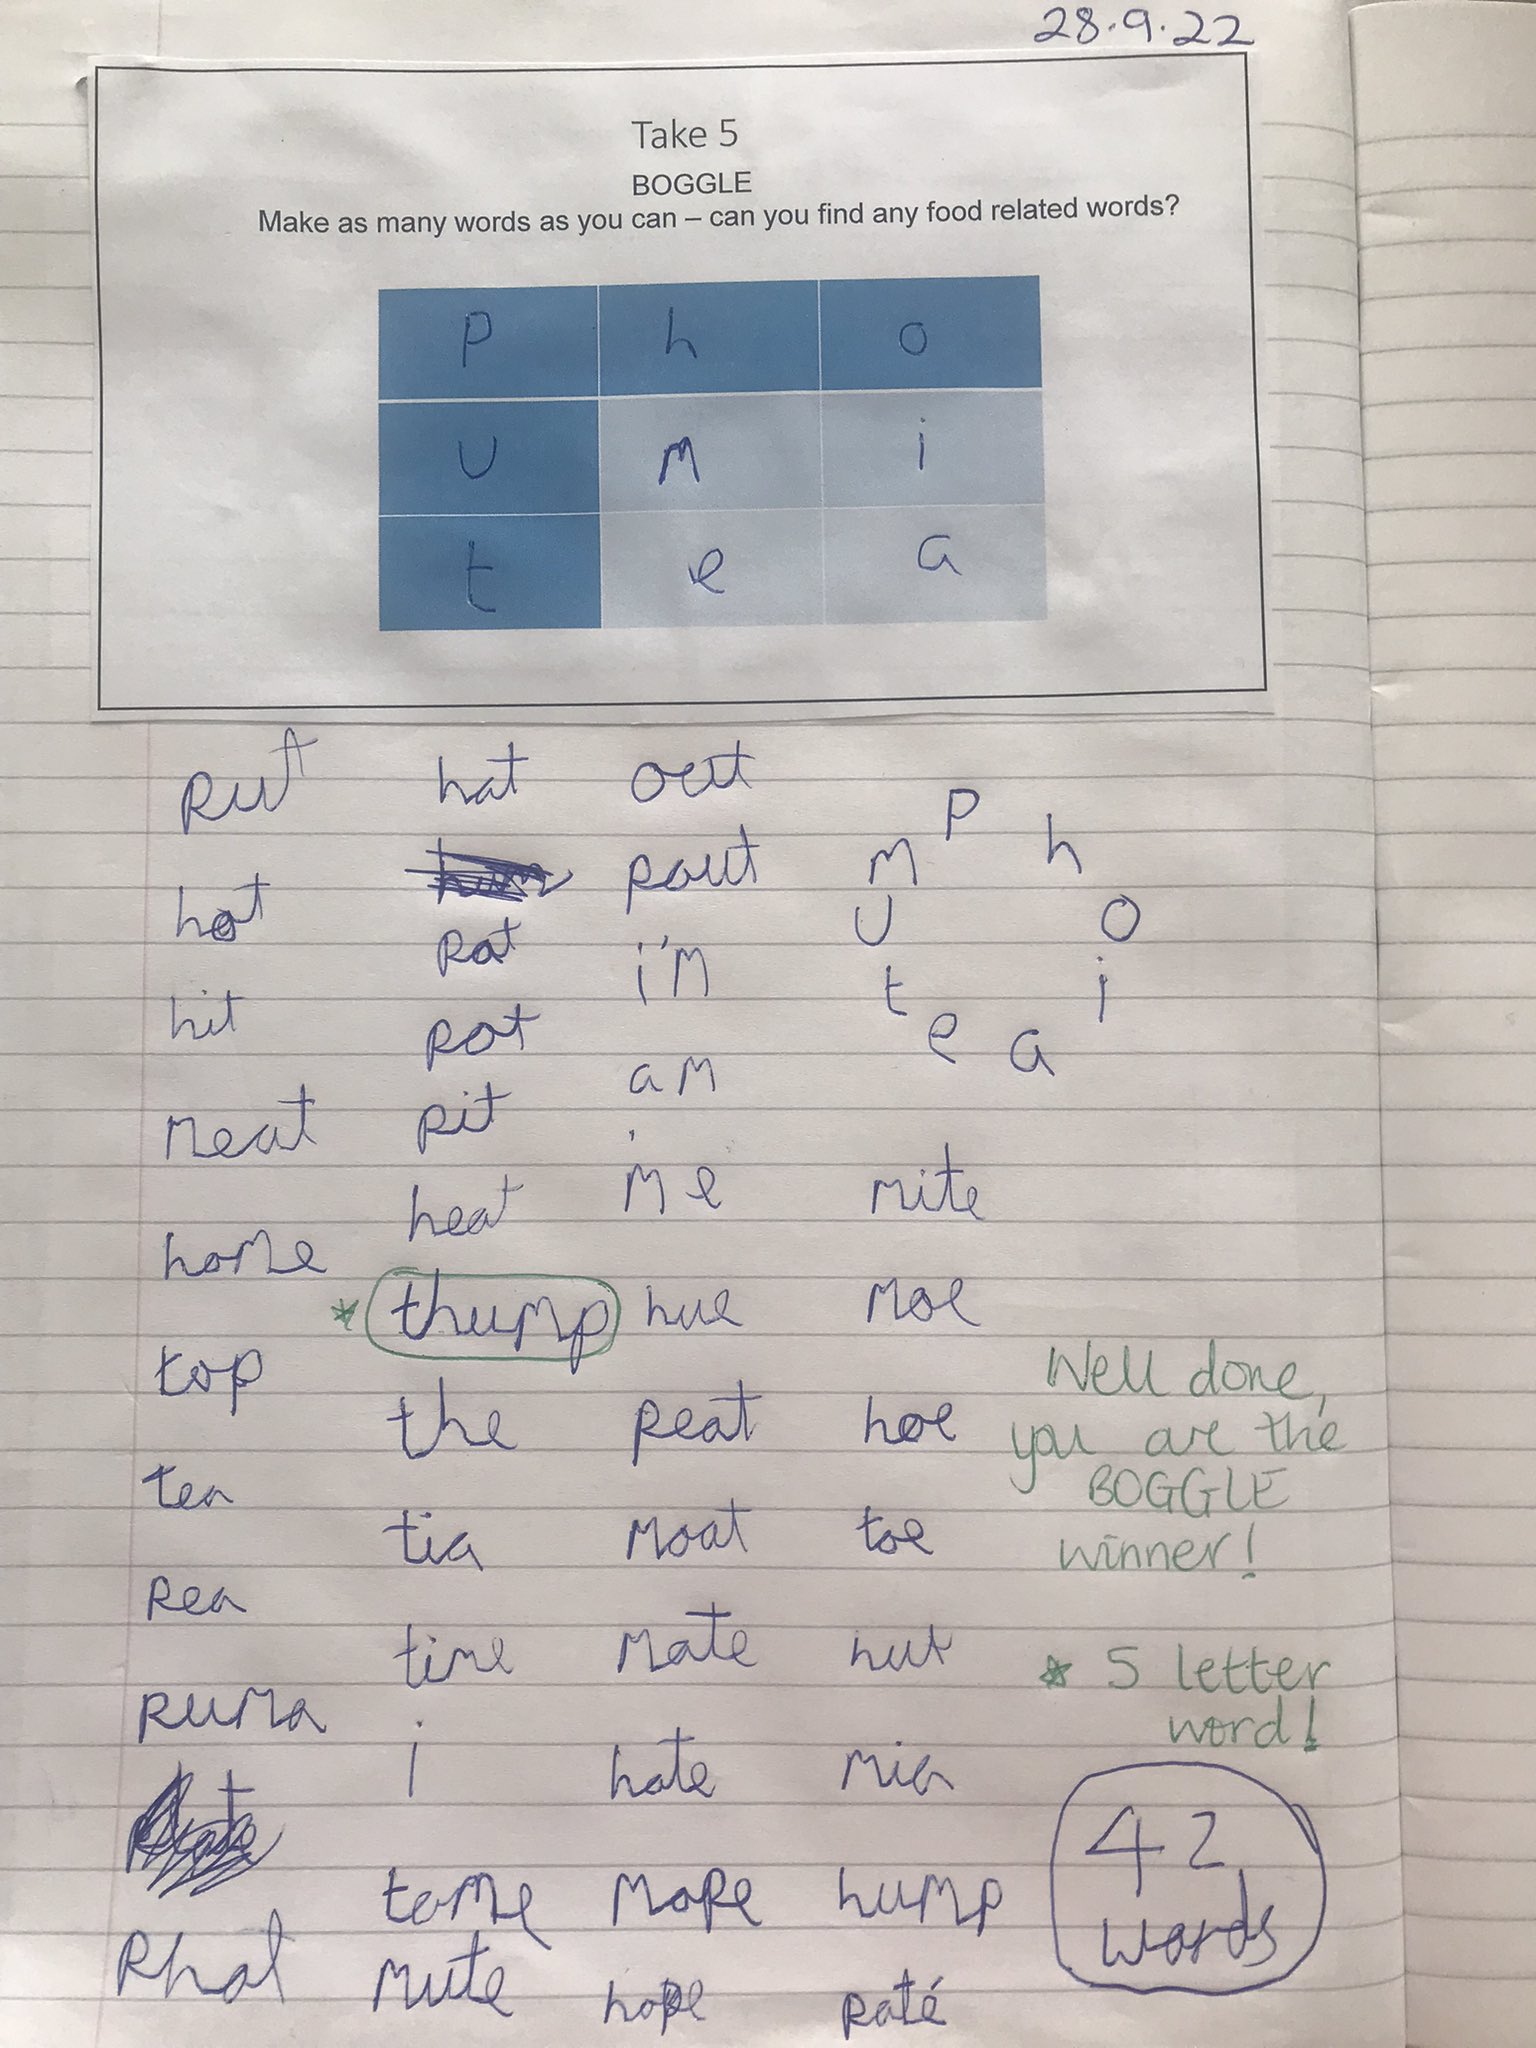 28.9.22
Take 5
BOGGLE
Make as many words as you can – can you find any food related words?
P h o
U M i
t e a
Put
hot
hit
Meat
home
top
tea
Pea
PuMa
Phat
hat
Pat
Pot
Pit
heat
* thump
the
tia
time
i
tome
Mute
out
pout
i'M
aM
Me
hue
Peat
Moat
Mate
hate
MoPe
hope
P
h
o
i
a
e
t
U
M
Mite
Moe
hoe
toe
hut
Mia
hump
Paté
Well done,
you are the
BOGGLE
winner!
* 5 letter
word!
42
words